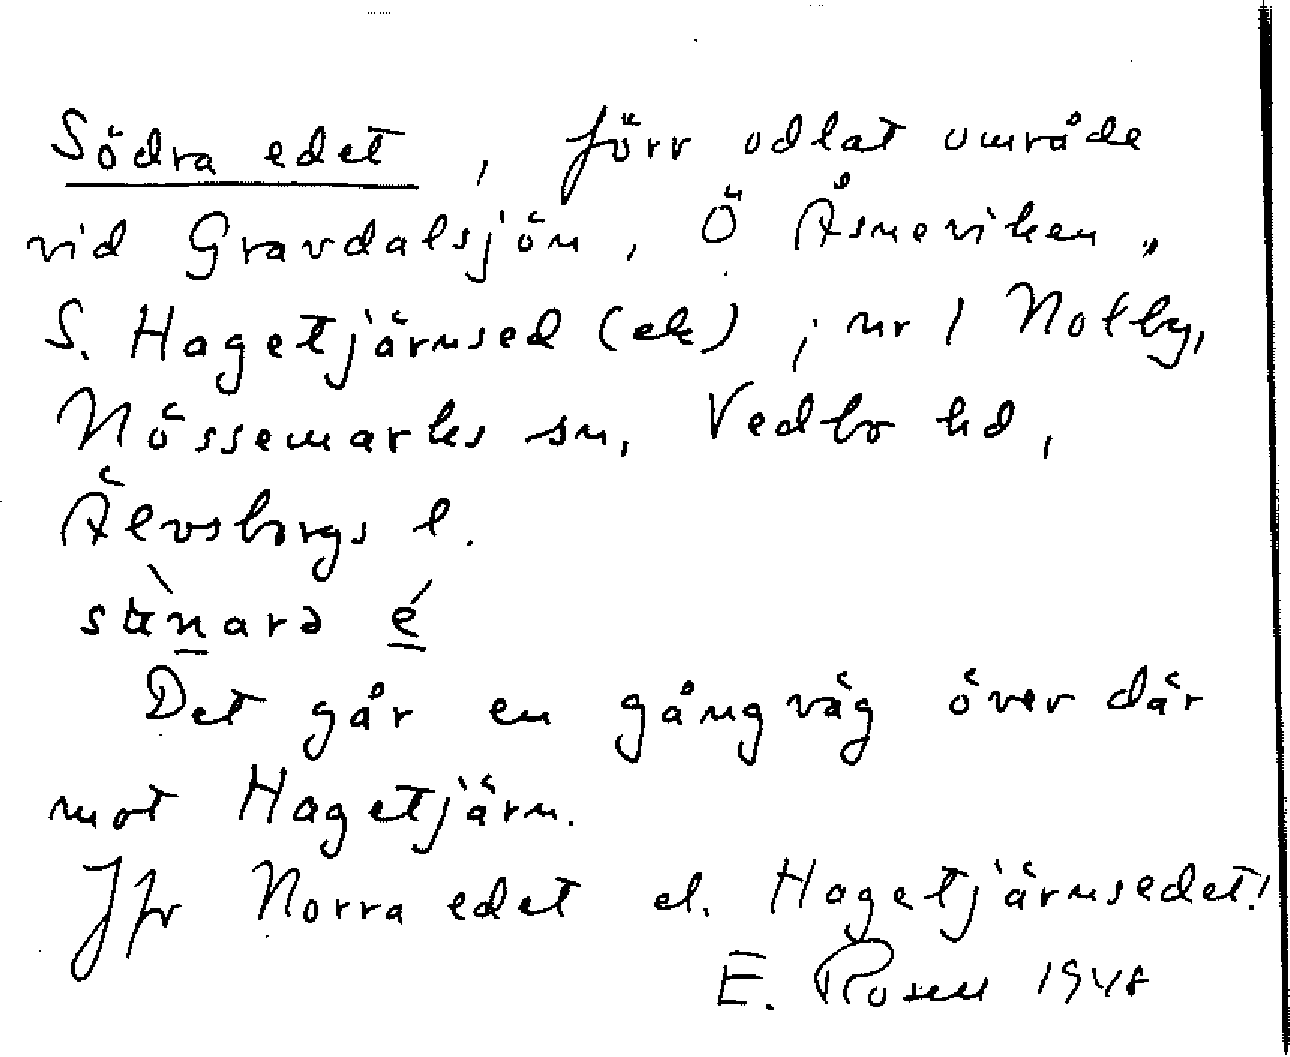 Södra edet, förr odlat område
vid Gravdalsjön, Ö Åsneviken,,
S. Hagetjärnsed (ek); nr 1 Nolby,
Nössemarks sn, Vedbo hd,
Älvsborgs l.
é
Det går en gångväg över där
mot Hagetjärn.
Jfr Norra edet el. Hagetjärnsedet!
E. Rosell 1948